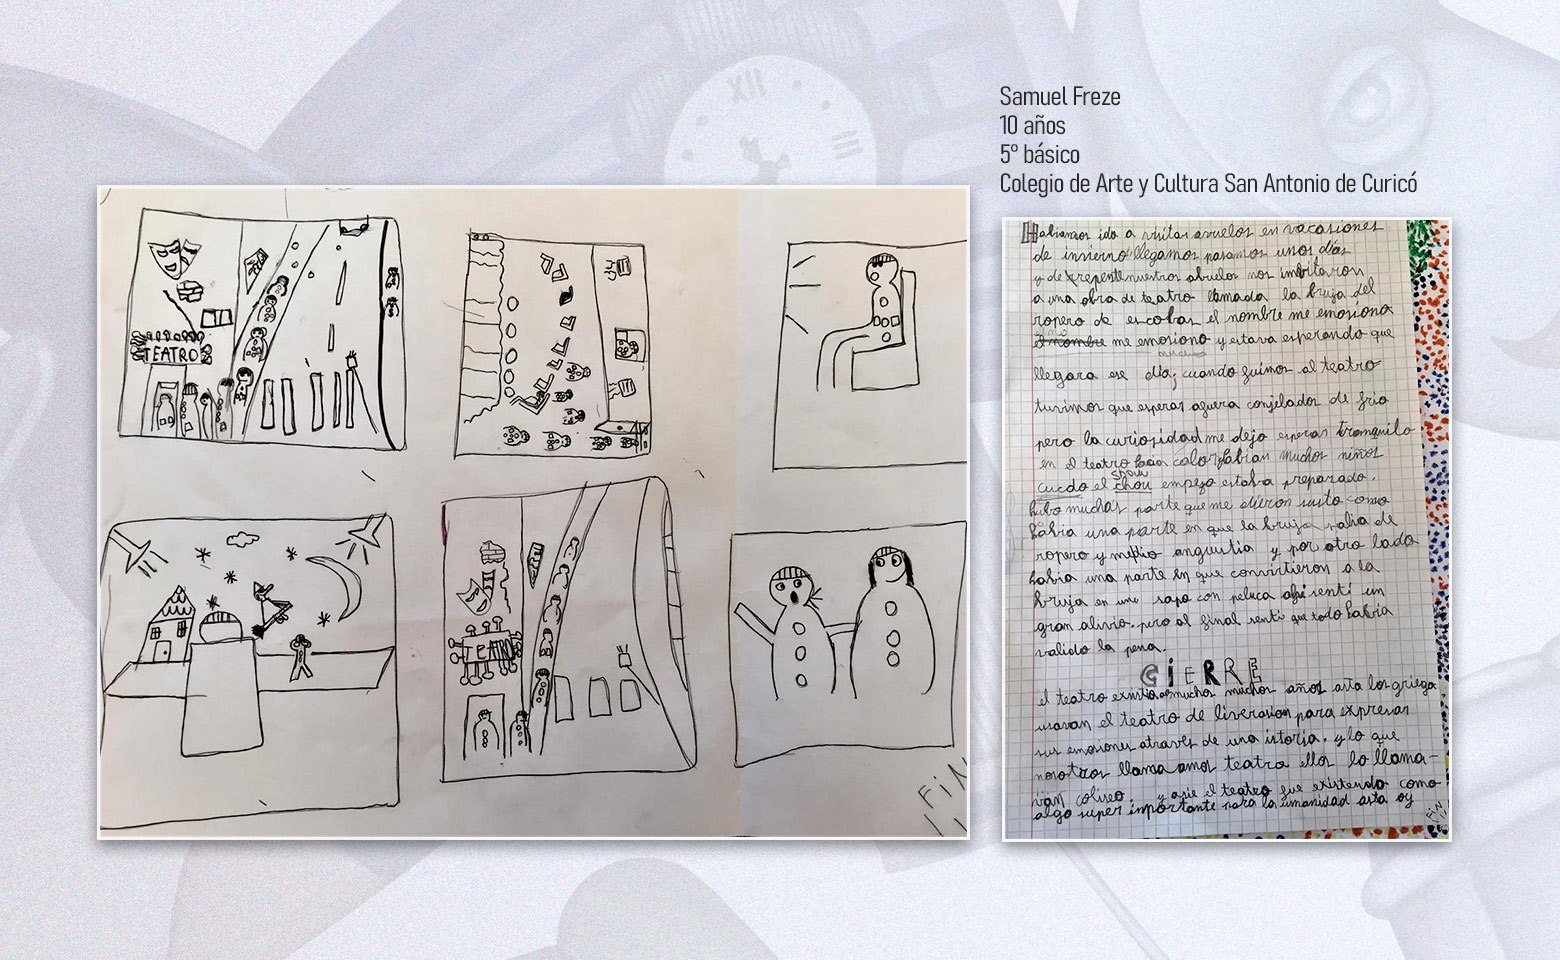 XII
III
Samuel Freze
10 años
5º básico
Colegio de Arte y Cultura San Antonio de Curicó
TEATRO
TEATRO
FiN
Habiamos ido a visitar avuelos en vacasiones
de invierno llegamos pasamos unos días
y de repente nuestros abuelos nos imbitaron
a una obra de teatro llamada la bruja del
ropero de escobas el nombre me emosiona
el nombre me emosiono y estava esperando que
llegara ese día, cuando fuimos al teatro
tuvimos que esperar afuera conjelados de frio
pero la curiosidad me dejo esperar tranquilo
en el teatro hacia calor habian muchos niños
cuando el chou show empezo estaba preparado.
hubo muchas parte que me dieron susto como
habia una parte en que la bruja salia de
ropero y metio anguistia y por otro lado
habia una parte en que convirtieron a la
bruja en une sapo con peluca ahi senti un
gran alivio. pero al final senti que todo habia
valido la pena.
CiERRE
el teatro existia muchos muchos años asta los griega
usavan el teatro de liversion para expresar
sus emosiones atraves de una istoria. y lo que
nosotros llama amos teatro ellos lo llama-
van coliseo. y asie el teatro gue existendo como
algo super importante para la umanidad asta oy
FiN